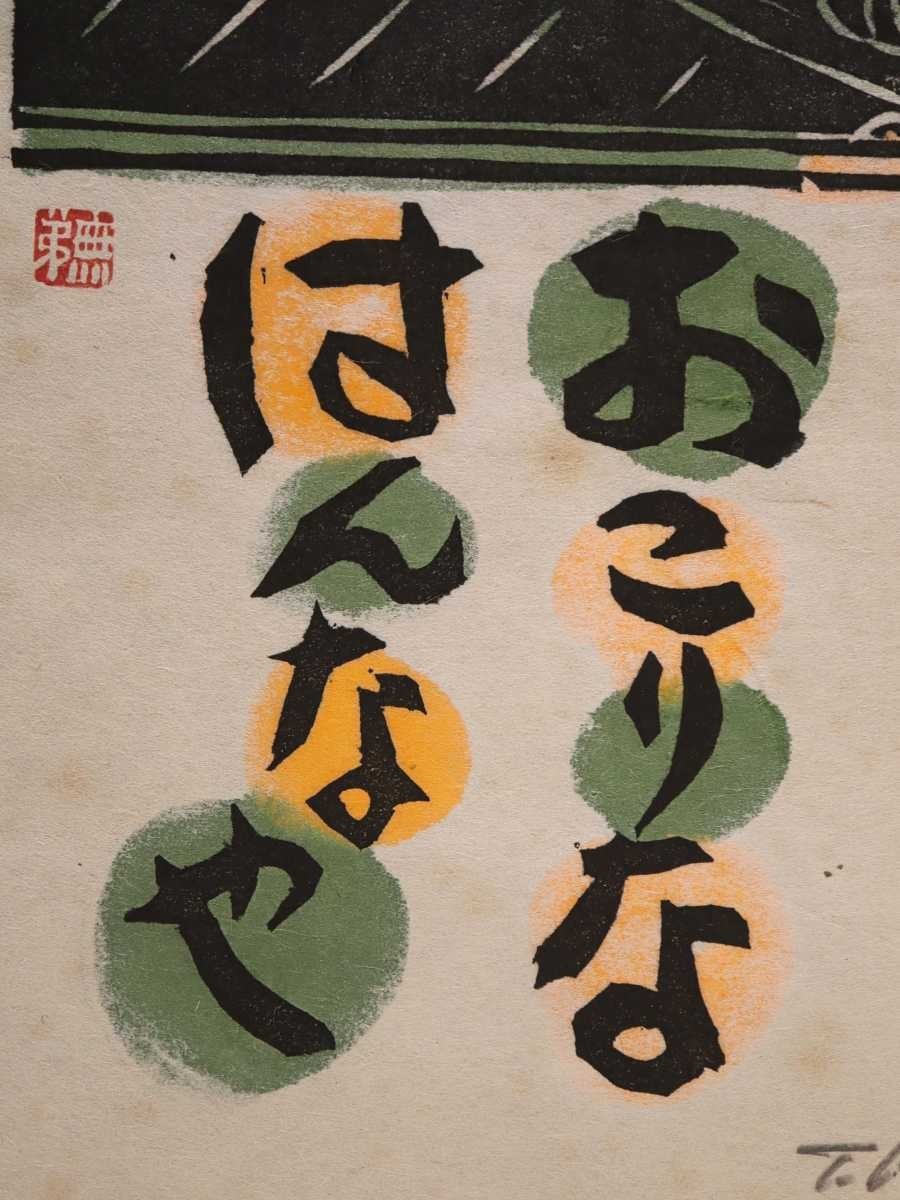 おこりな
はんなや
無弟
T.